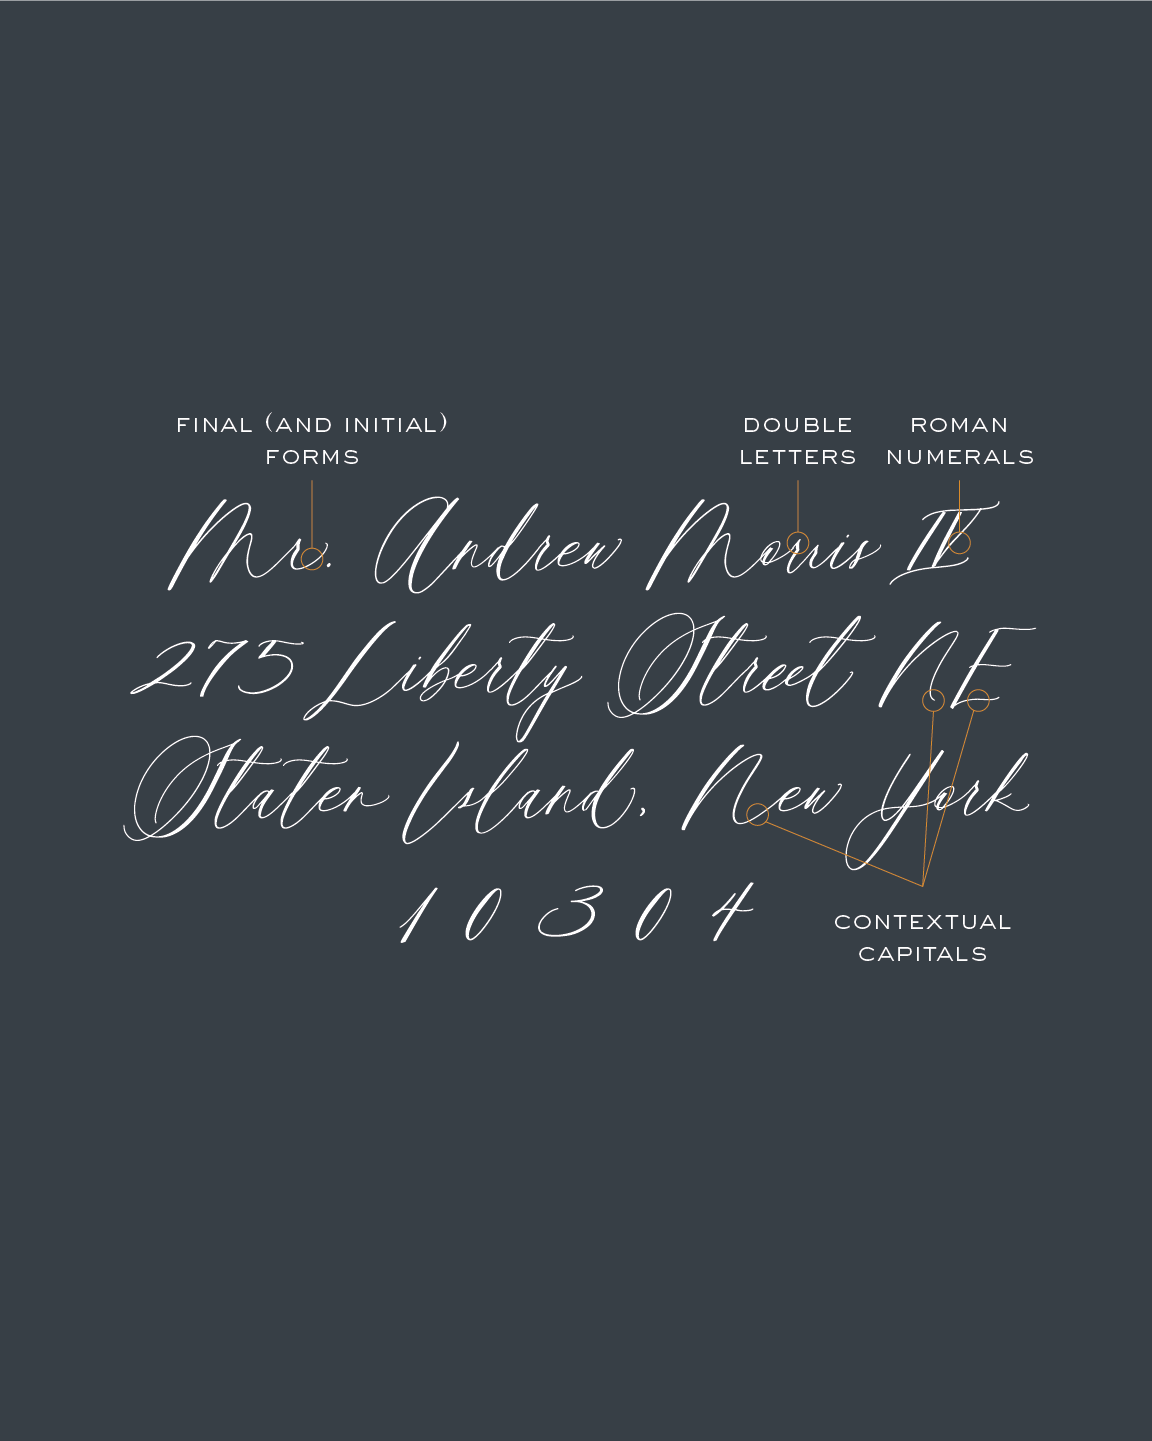 FINAL (AND INITIAL)
FORMS
DOUBLE
LETTERS
ROMAN
NUMERALS
Mr. Andrew Morris IV
275 Liberty Street NE
Staten Island, New York
10304
CONTEXTUAL
CAPITALS